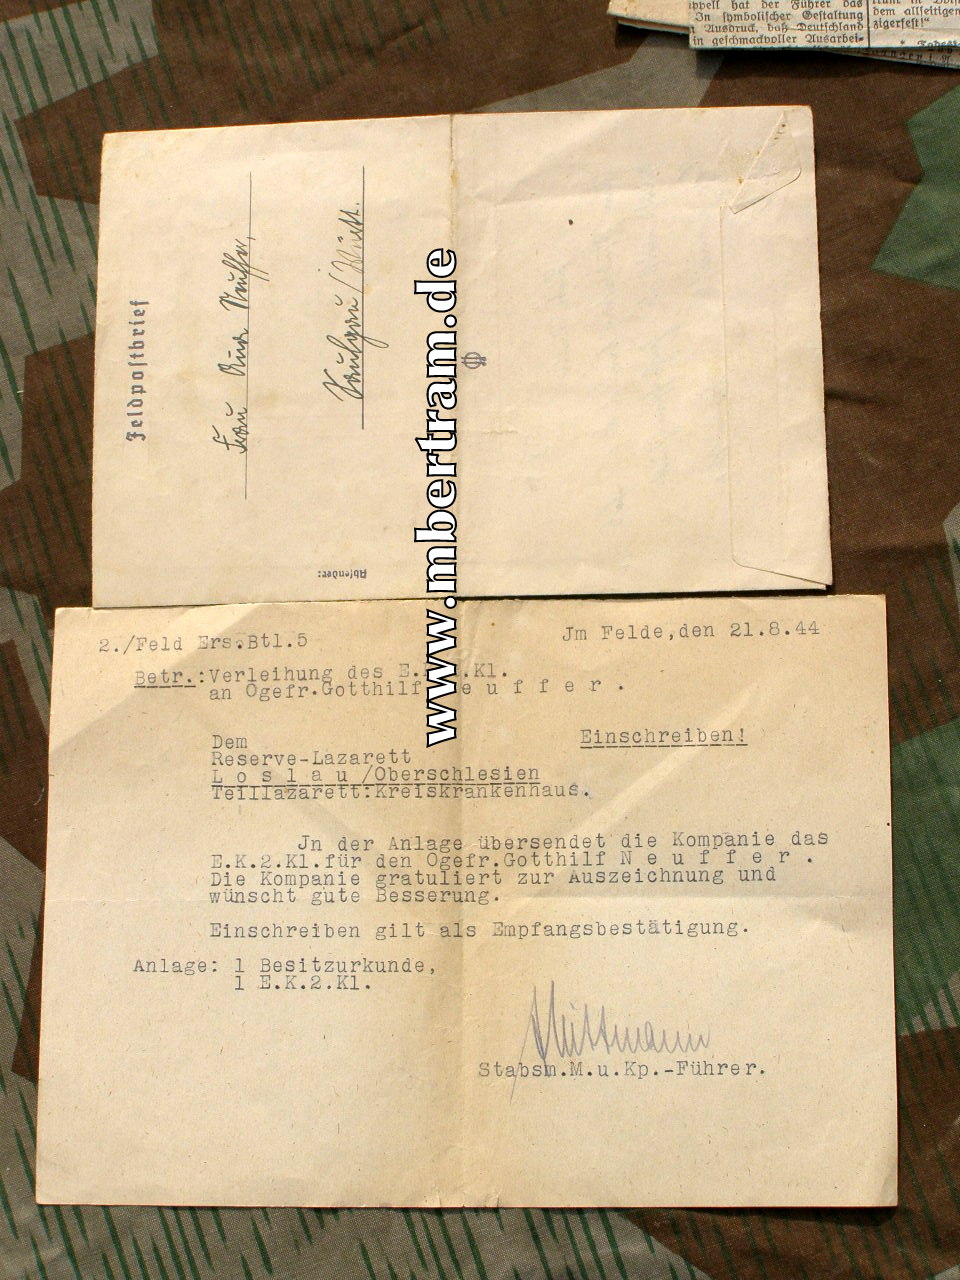 hat der Führer das
In symbolischer Gestaltung
Ausdruck, daß Deutschland
in geschmackvoller Ausarbei-
dem allseitigen
zigerfest!"
Feldpostbrief
Frau
Saulgau / Württ.
Absender:
www.mbertram.de
2./Feld Ers.Btl.5
Jm Felde,den 21.8.44
Betr.:Verleihung des E. .Kl.
an Ogefr.Gotthilf e u f f e r .
Einschreiben!
Dem
Reserve-Lazarett
L o s l a u /Oberschlesien
Teillazarett:Kreiskrankenhaus.
Jn der Anlage übersendet die Kompanie das
E.K.2.Kl.für den Ogefr.Gotthilf N e u f f e r .
Die Kompanie gratuliert zur Auszeichnung und
wünscht gute Besserung.
Einschreiben gilt als Empfangsbestätigung.
Anlage: 1 Besitzurkunde,
1 E.K.2.Kl.
Stabsm.M.u.Kp.-Führer.